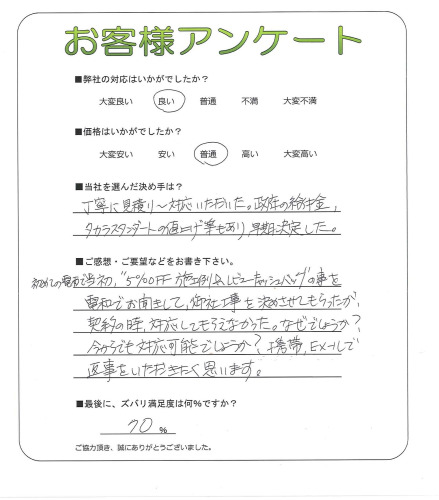 お客様アンケート
■弊社の対応はいかがでしたか?
大変良い 良い 普通 不満 大変不満
■価格はいかがでしたか?
大変安い 安い 普通 高い 大変高い
■当社を選んだ決め手は?
丁寧に見積り〜対応いただいた。政府の給付金,
タカラスタンダートの値上げ等もあり,早期決定した。
■ご感想・ご要望などをお書き下さい。
初めての電話で当初,"5%OFF 施工例&レビューキャッシュバック"の事を
電話でお聞きして,御社工事を決めさせてもらったが,
契約の時,対応してもらえなかった。なぜでしょうか?
今からでも対応可能でしょうか? 携帯,Eメールで
返事をいただきたく思います。
■最後に、ズバリ満足度は何%ですか?
70 %
ご協力頂き、誠にありがとうございました。